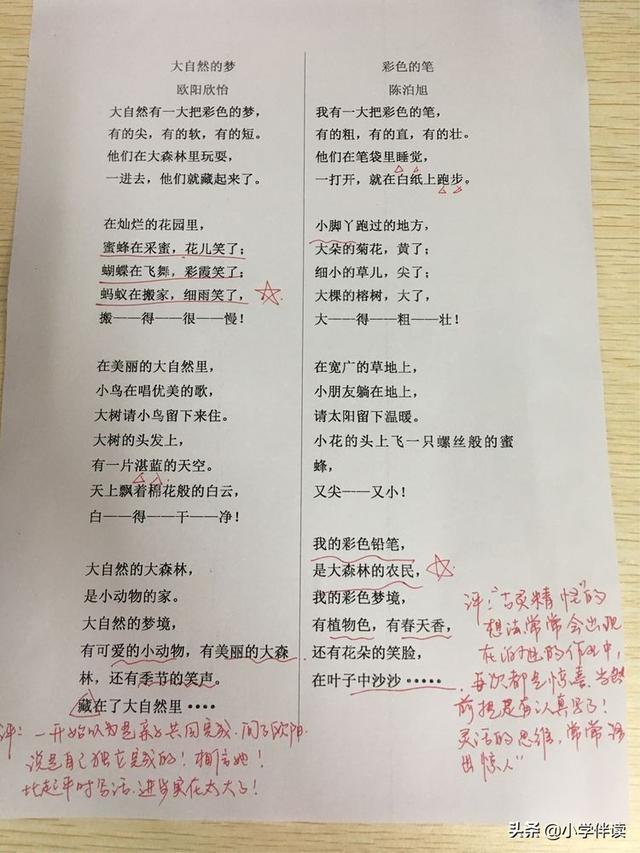 大自然的梦
欧阳欣怡
大自然有一大把彩色的梦，
有的尖，有的软，有的短。
他们在大森林里玩耍，
一进去，他们就藏起来了。
在灿烂的花园里，
蜜蜂在采蜜，花儿笑了；
蝴蝶在飞舞，彩霞笑了；
蚂蚁在搬家，细雨笑了，
搬——得——很——慢！
在美丽的大自然里，
小鸟在唱优美的歌，
大树请小鸟留下来住。
大树的头发上，
有一片湛蓝的天空。
天上飘着棉花般的白云，
白——得——干——净！
大自然的大森林，
是小动物的家。
大自然的梦境，
有可爱的小动物，有美丽的大森
林，还有季节的笑声。
藏在了大自然里····
评：一开始以为是亲子共同完成，问了欧阳
说是自己独立完成的！相信她！
比起平时写话，进步实在太大了！
彩色的笔
陈泊旭
我有一大把彩色的笔，
有的粗，有的直，有的壮。
他们在笔袋里睡觉，
一打开，就在白纸上跑步。
小脚丫跑过的地方，
大朵的菊花，黄了；
细小的草儿，尖了；
大棵的榕树，大了，
大——得——粗——壮！
在宽广的草地上，
小朋友躺在地上，
请太阳留下温暖。
小花的头上飞一只螺丝般的蜜
蜂，
又尖——又小！
我的彩色铅笔，
是大森林的农民，
我的彩色梦境，
有植物色，有春天香，
还有花朵的笑脸，
在叶子中沙沙·····
评："古灵精怪"的
想法常常会出现
在泊旭的作业中，
每次都是惊喜，当然
前提是有认真写了！
灵活的思维，常常"语
出惊人"
头条 @小学伴读